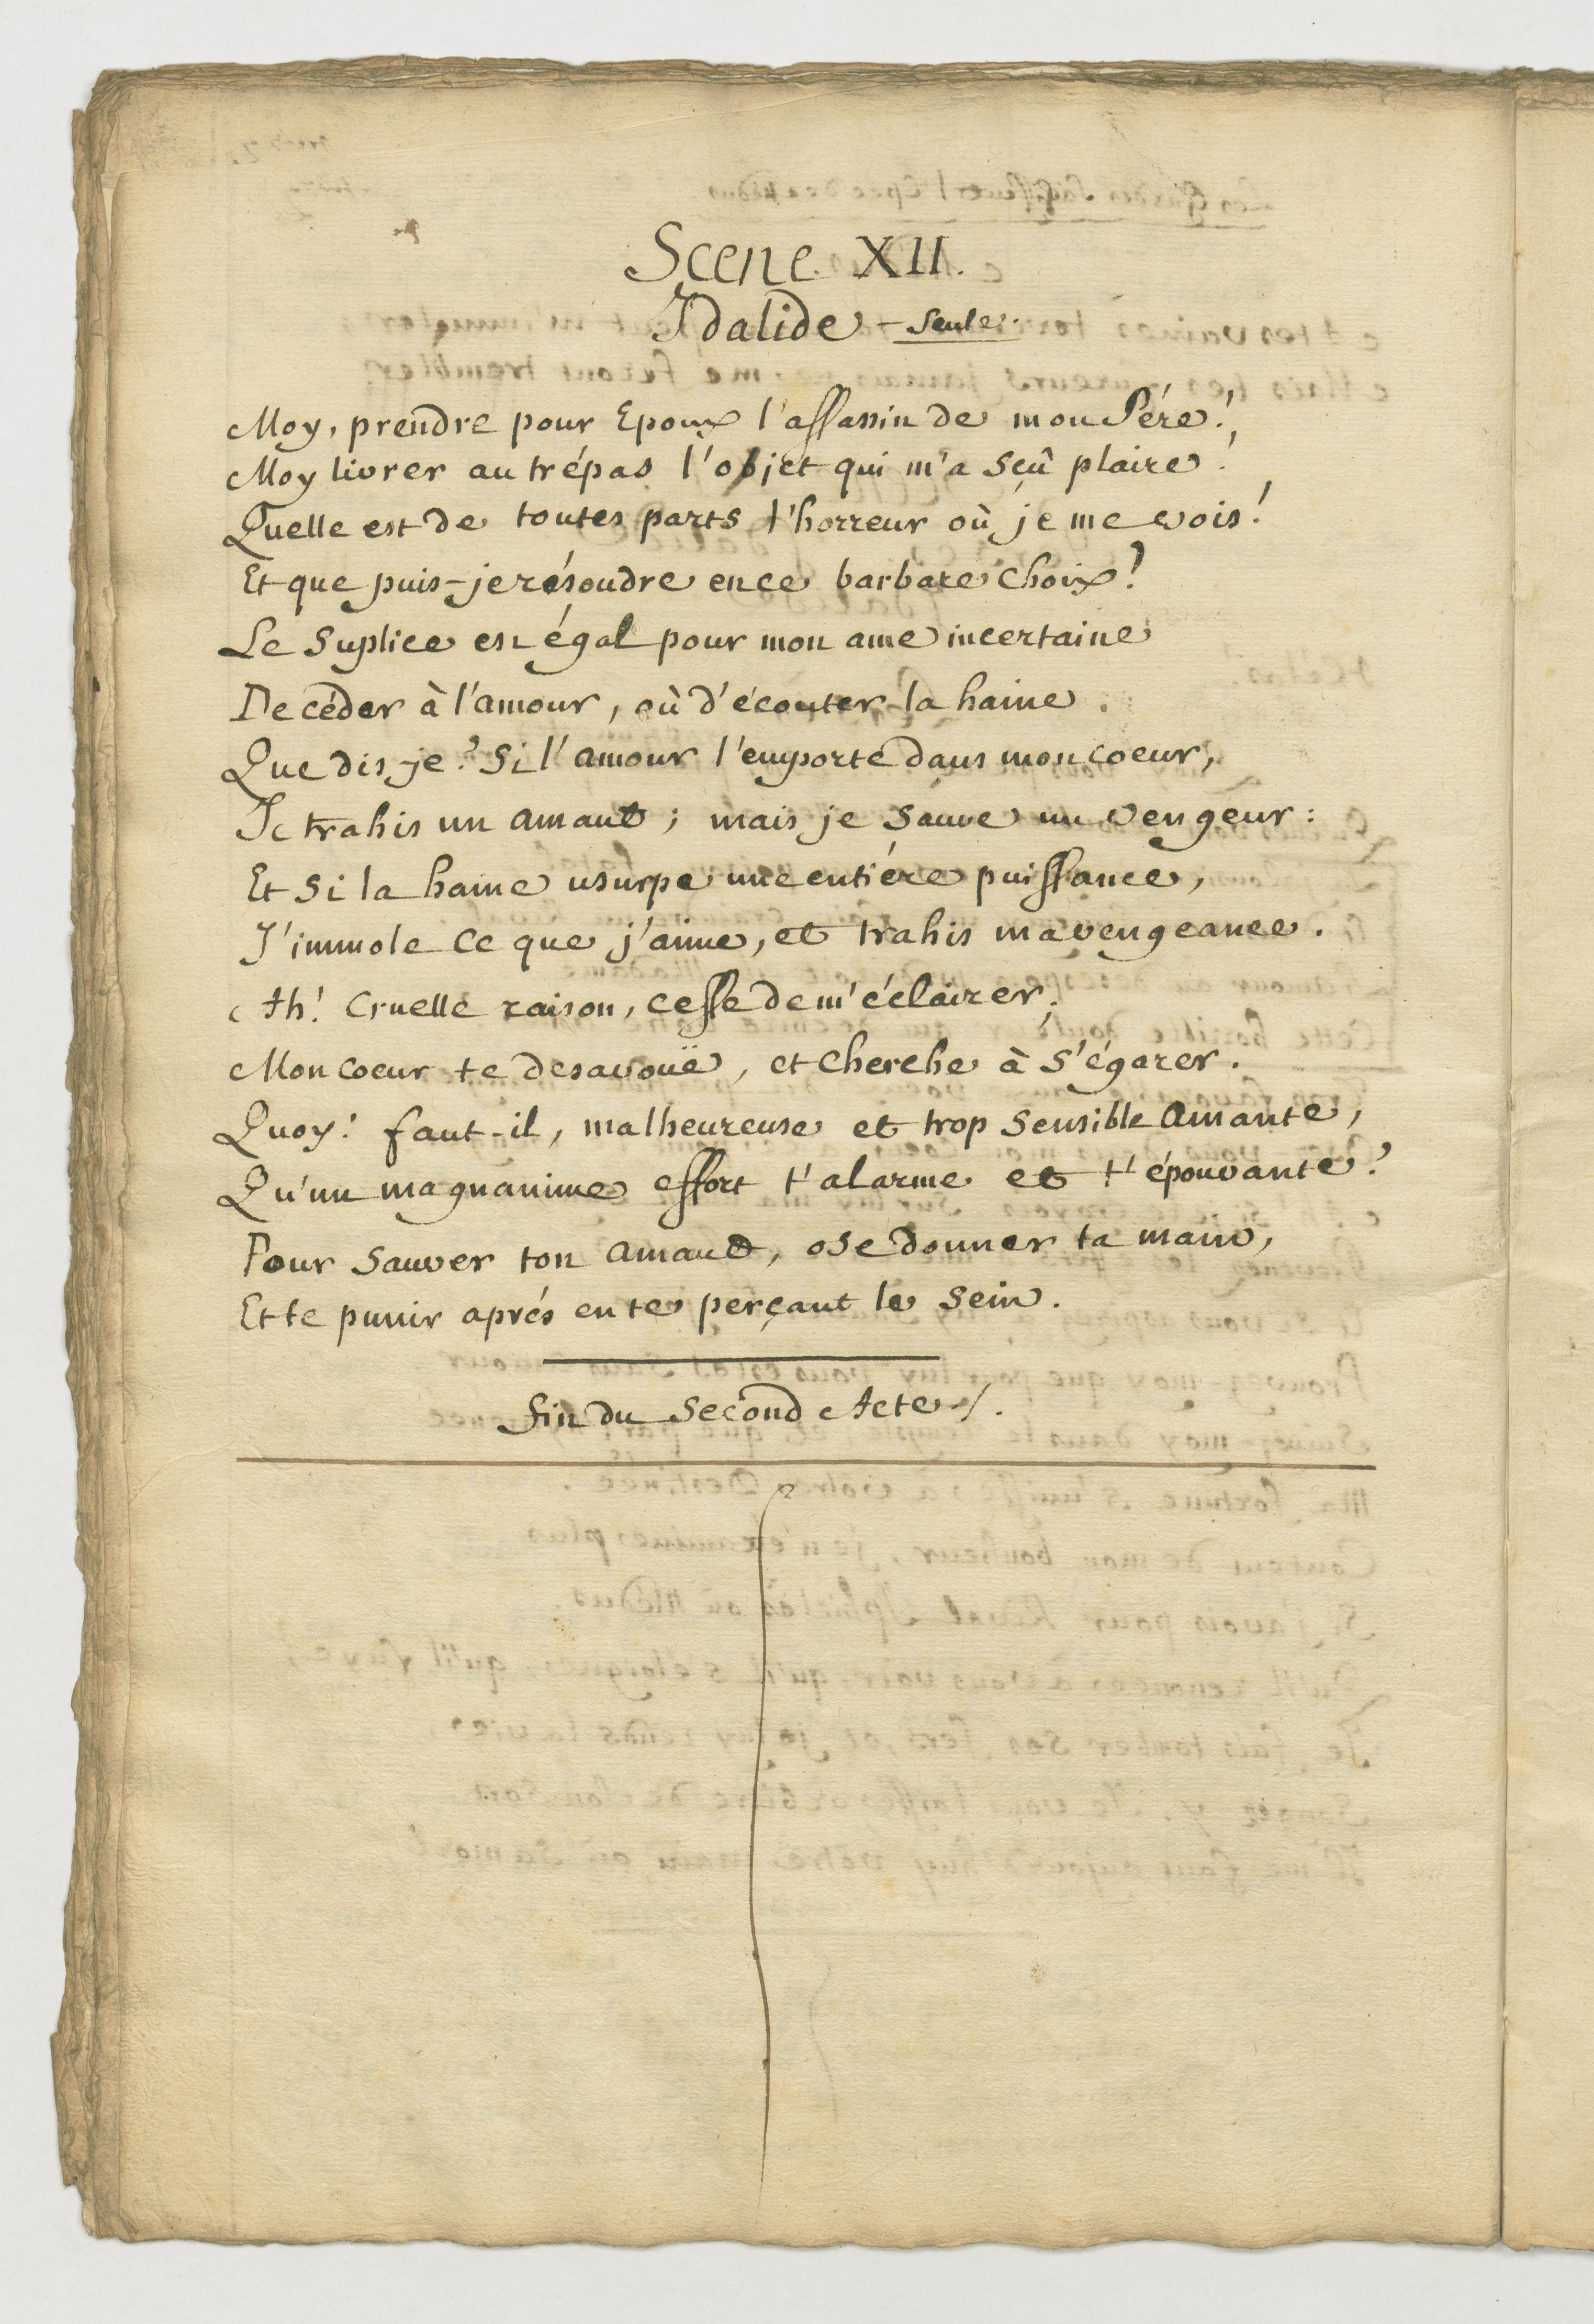 Scene XII.
Idalide - seule.
Moy, prendre pour Epoux l'assassin de mon Pére!
Moy livrer au trépas l'objet qui m'a sçû plaire!
Quelle est de toutes parts l'horreur où je me vois!
Et que puis-je résoudre en ce barbare choix!
Le suplice est égal pour mon ame incertaine
De céder à l'amour, où d'écouter la haine.
Que dis-je? Si l'amour l'emporte dans mon coeur,
Je trahis un amant; mais je sauve un vengeur:
Et si la haine usurpe une entiére puissance,
J'immole ce que j'aime, et trahis ma vengeance.
Ah! cruelle raison, cesse de m'éclairer;
Mon coeur te desavouë, et cherche à s'égarer.
Quoy! faut-il, malheureuse et trop sensible amante,
Qu'un magnanime effort t'alarme et t'épouvante?
Pour sauver ton amant, ose donner ta main,
Et te punir aprés en te perçant le sein.
fin du second Acte /.